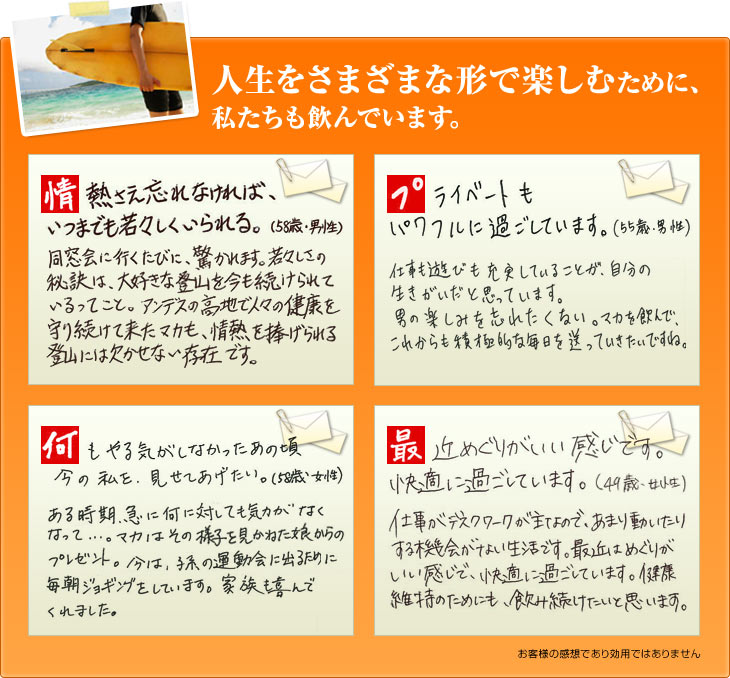 人生をさまざまな形で楽しむために、
私たちも飲んでいます。
情熱さえ忘れなければ、
いつまでも若々しくいられる。(58歳・男性)
同窓会に行くたびに、驚かれます。若々しさの
秘訣は、大好きな登山を今も続けられて
いるってこと。アンデスの高地で人々の健康を
守り続けて来たマカも、情熱を捧げられる
登山には欠かせない存在です。
プライベートも
パワフルに過ごしています。(55歳・男性)
仕事も遊びも充実していることが、自分の
生きがいだと思っています。
男の楽しみを忘れたくない。マカを飲んで、
これからも積極的な毎日を送っていきたいですね。
何もやる気がしなかったあの頃
今の私を、見せてあげたい。(58歳・女性)
ある時期、急に何に対しても気力がなく
なって…。マカはその様子を見かねた娘からの
プレゼント。今は、孫の運動会に出るために
毎朝ジョギングをしています。家族も喜んで
くれました。
最近めぐりがいい感じです。
快適に過ごしています。(49歳・女性)
仕事がデスクワークが主なので、あまり動いたり
する機会がない生活です。最近はめぐりが
いい感じで、快適に過ごしています。健康
維持のためにも、飲み続けたいと思います。
お客様の感想であり効用ではありません